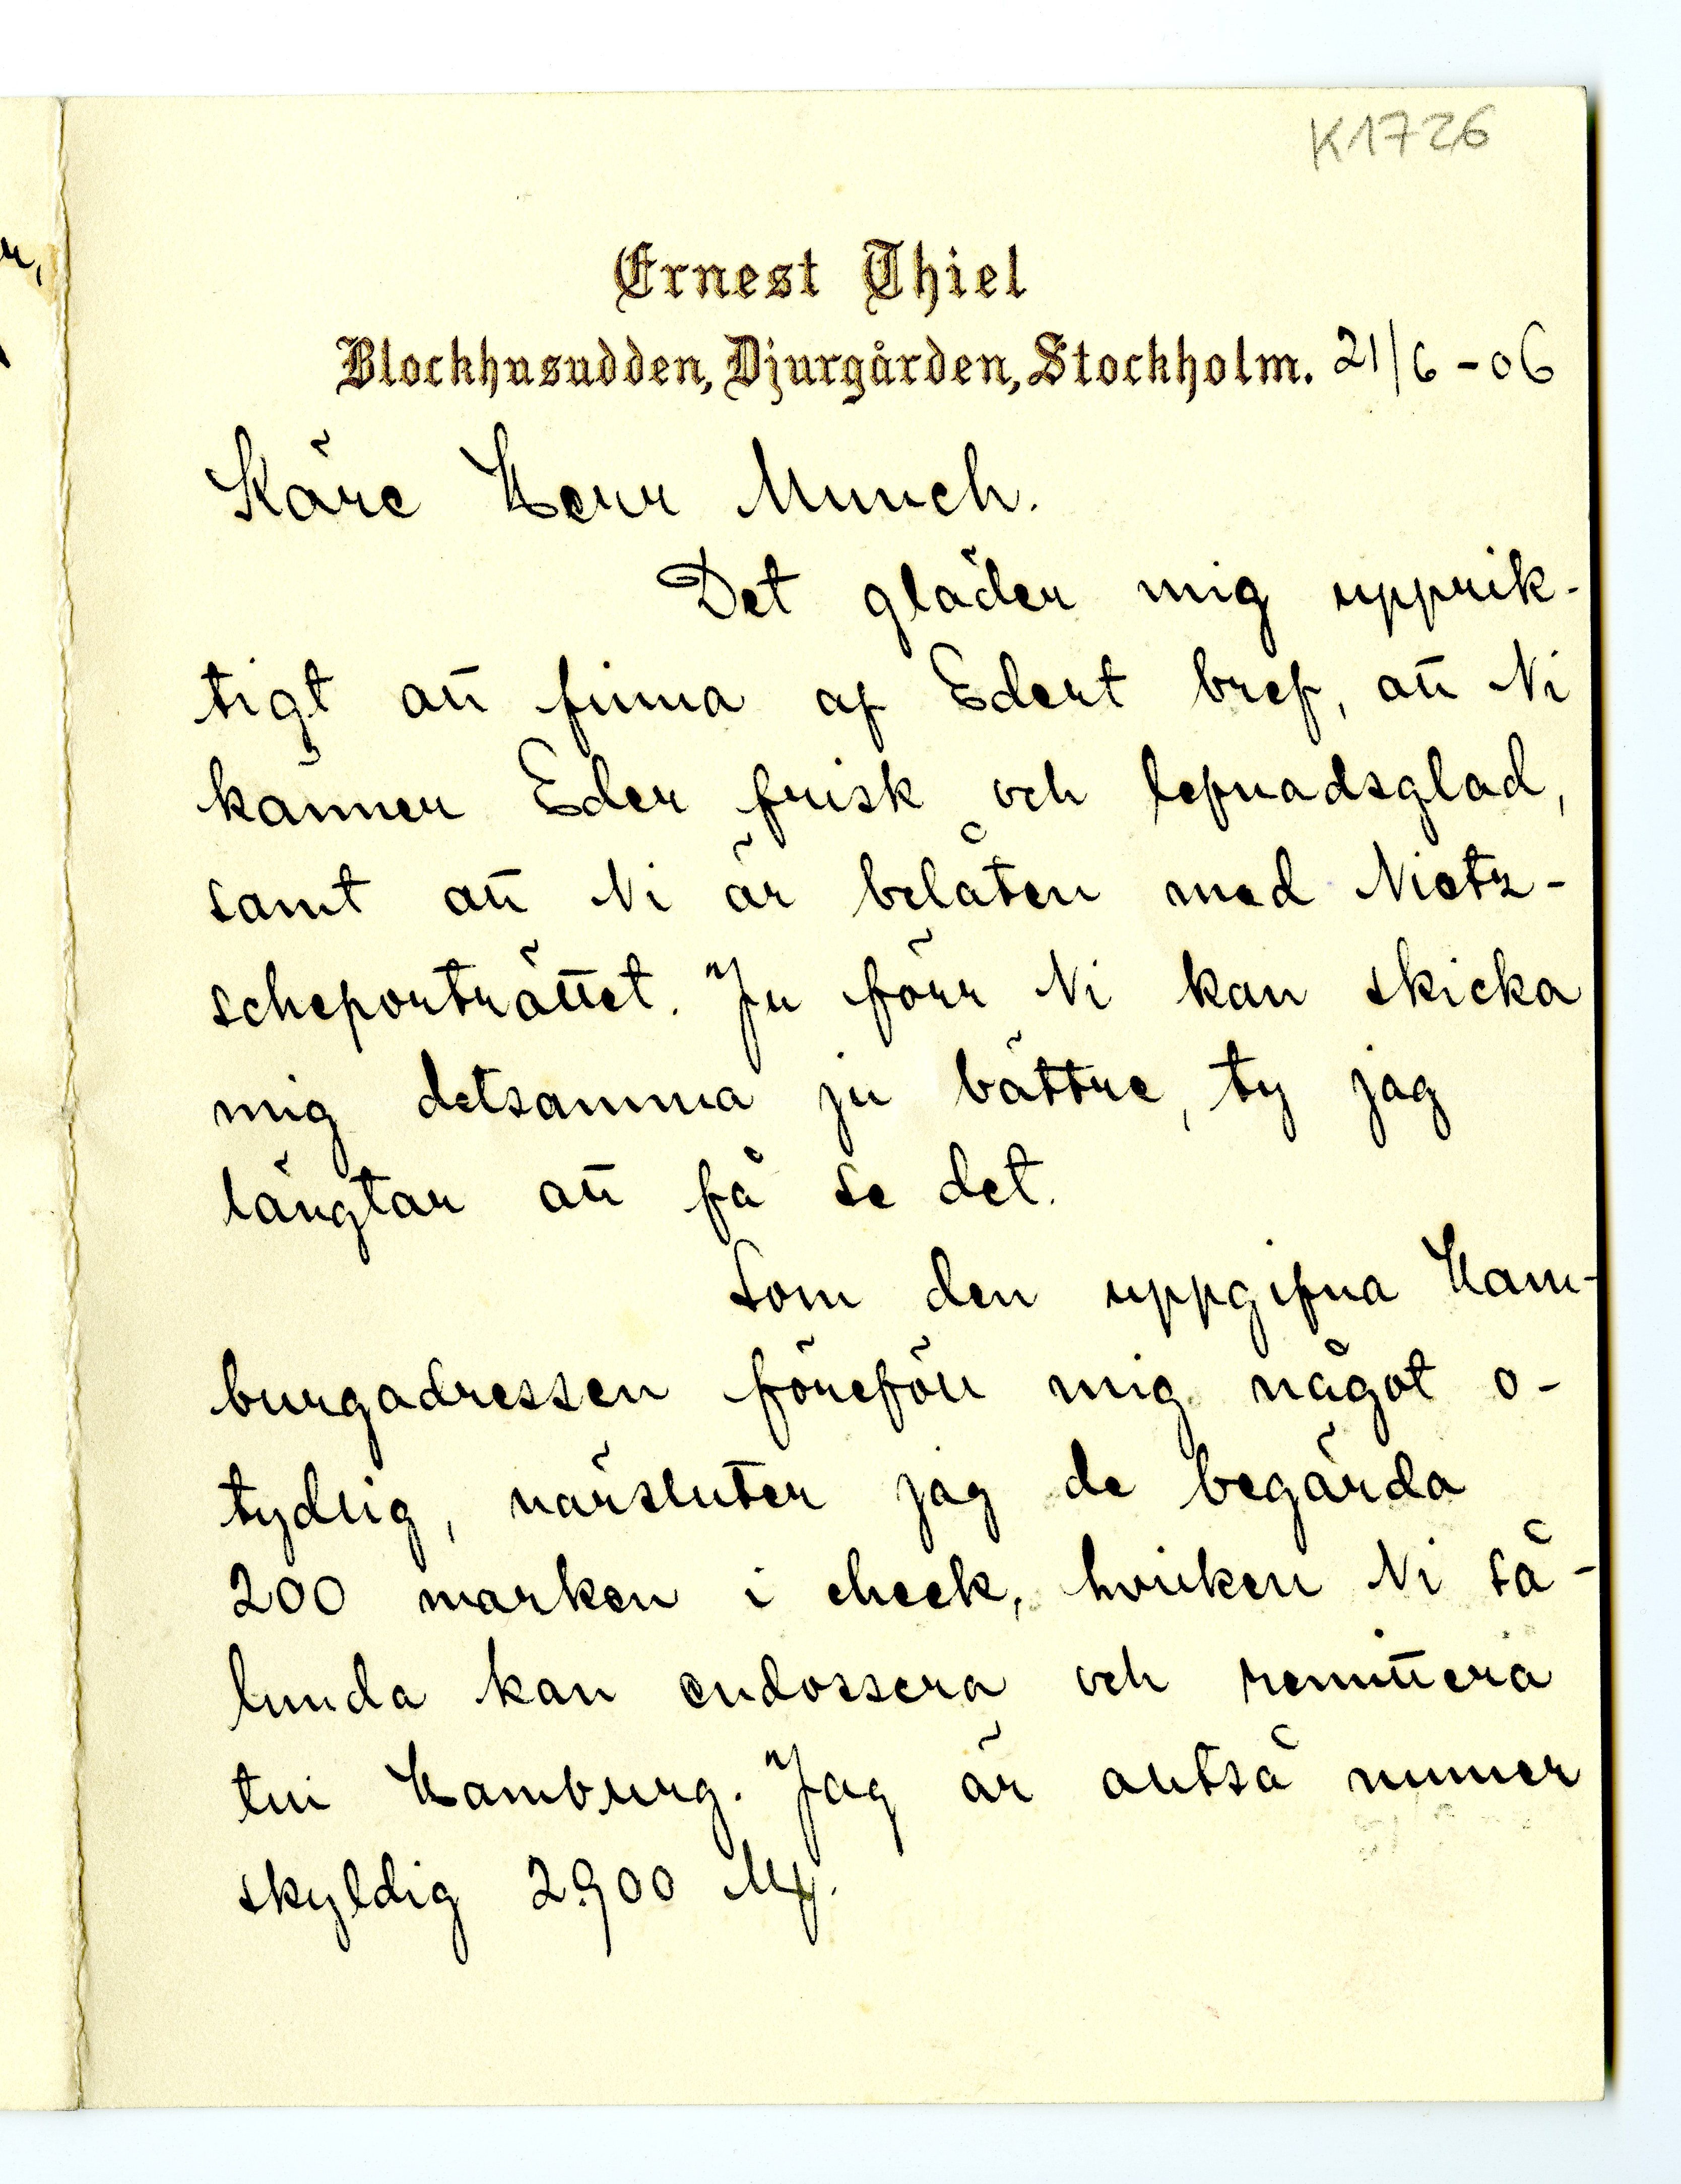 K1726
Ernest Thiel
Blockhusudden, Djurgården, Stockholm. 21/6-06
Käre Herr Munch.
Det gläder mig upprik-
tigt att finna af Edert bref, att Ni
känner Eder frisk och lefnadsglad,
samt att Ni är belåten med Nietz-
scheporträttet. Ju förr Ni kan skicka
mig detsamma ju bättre, ty jag
längtar att få se det.
Som den uppgifna Ham-
burgadressen föreföll mig något o-
tydlig, närsluter jag de begärda
200 marken i check, hvilken Ni så-
lunda kan endossera och remittera
till Hamburg. Jag är alltså numer
skyldig 2900 Mk.